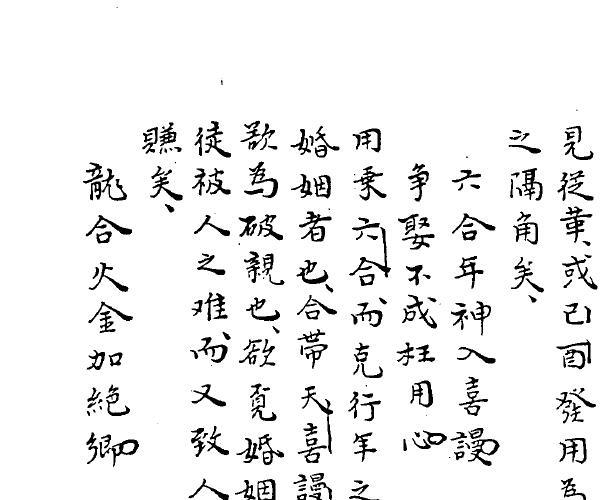 見從革、或己酉發用為
之隔角矣、
六合年神入喜謾
争娶不成枉用心
用乗六合而克行年之
婚姻者也、合帶天喜謾
欲為破親也、欲覓婚姻
徒被人之难而又致人
赚矣、
龍合火金加絶卿